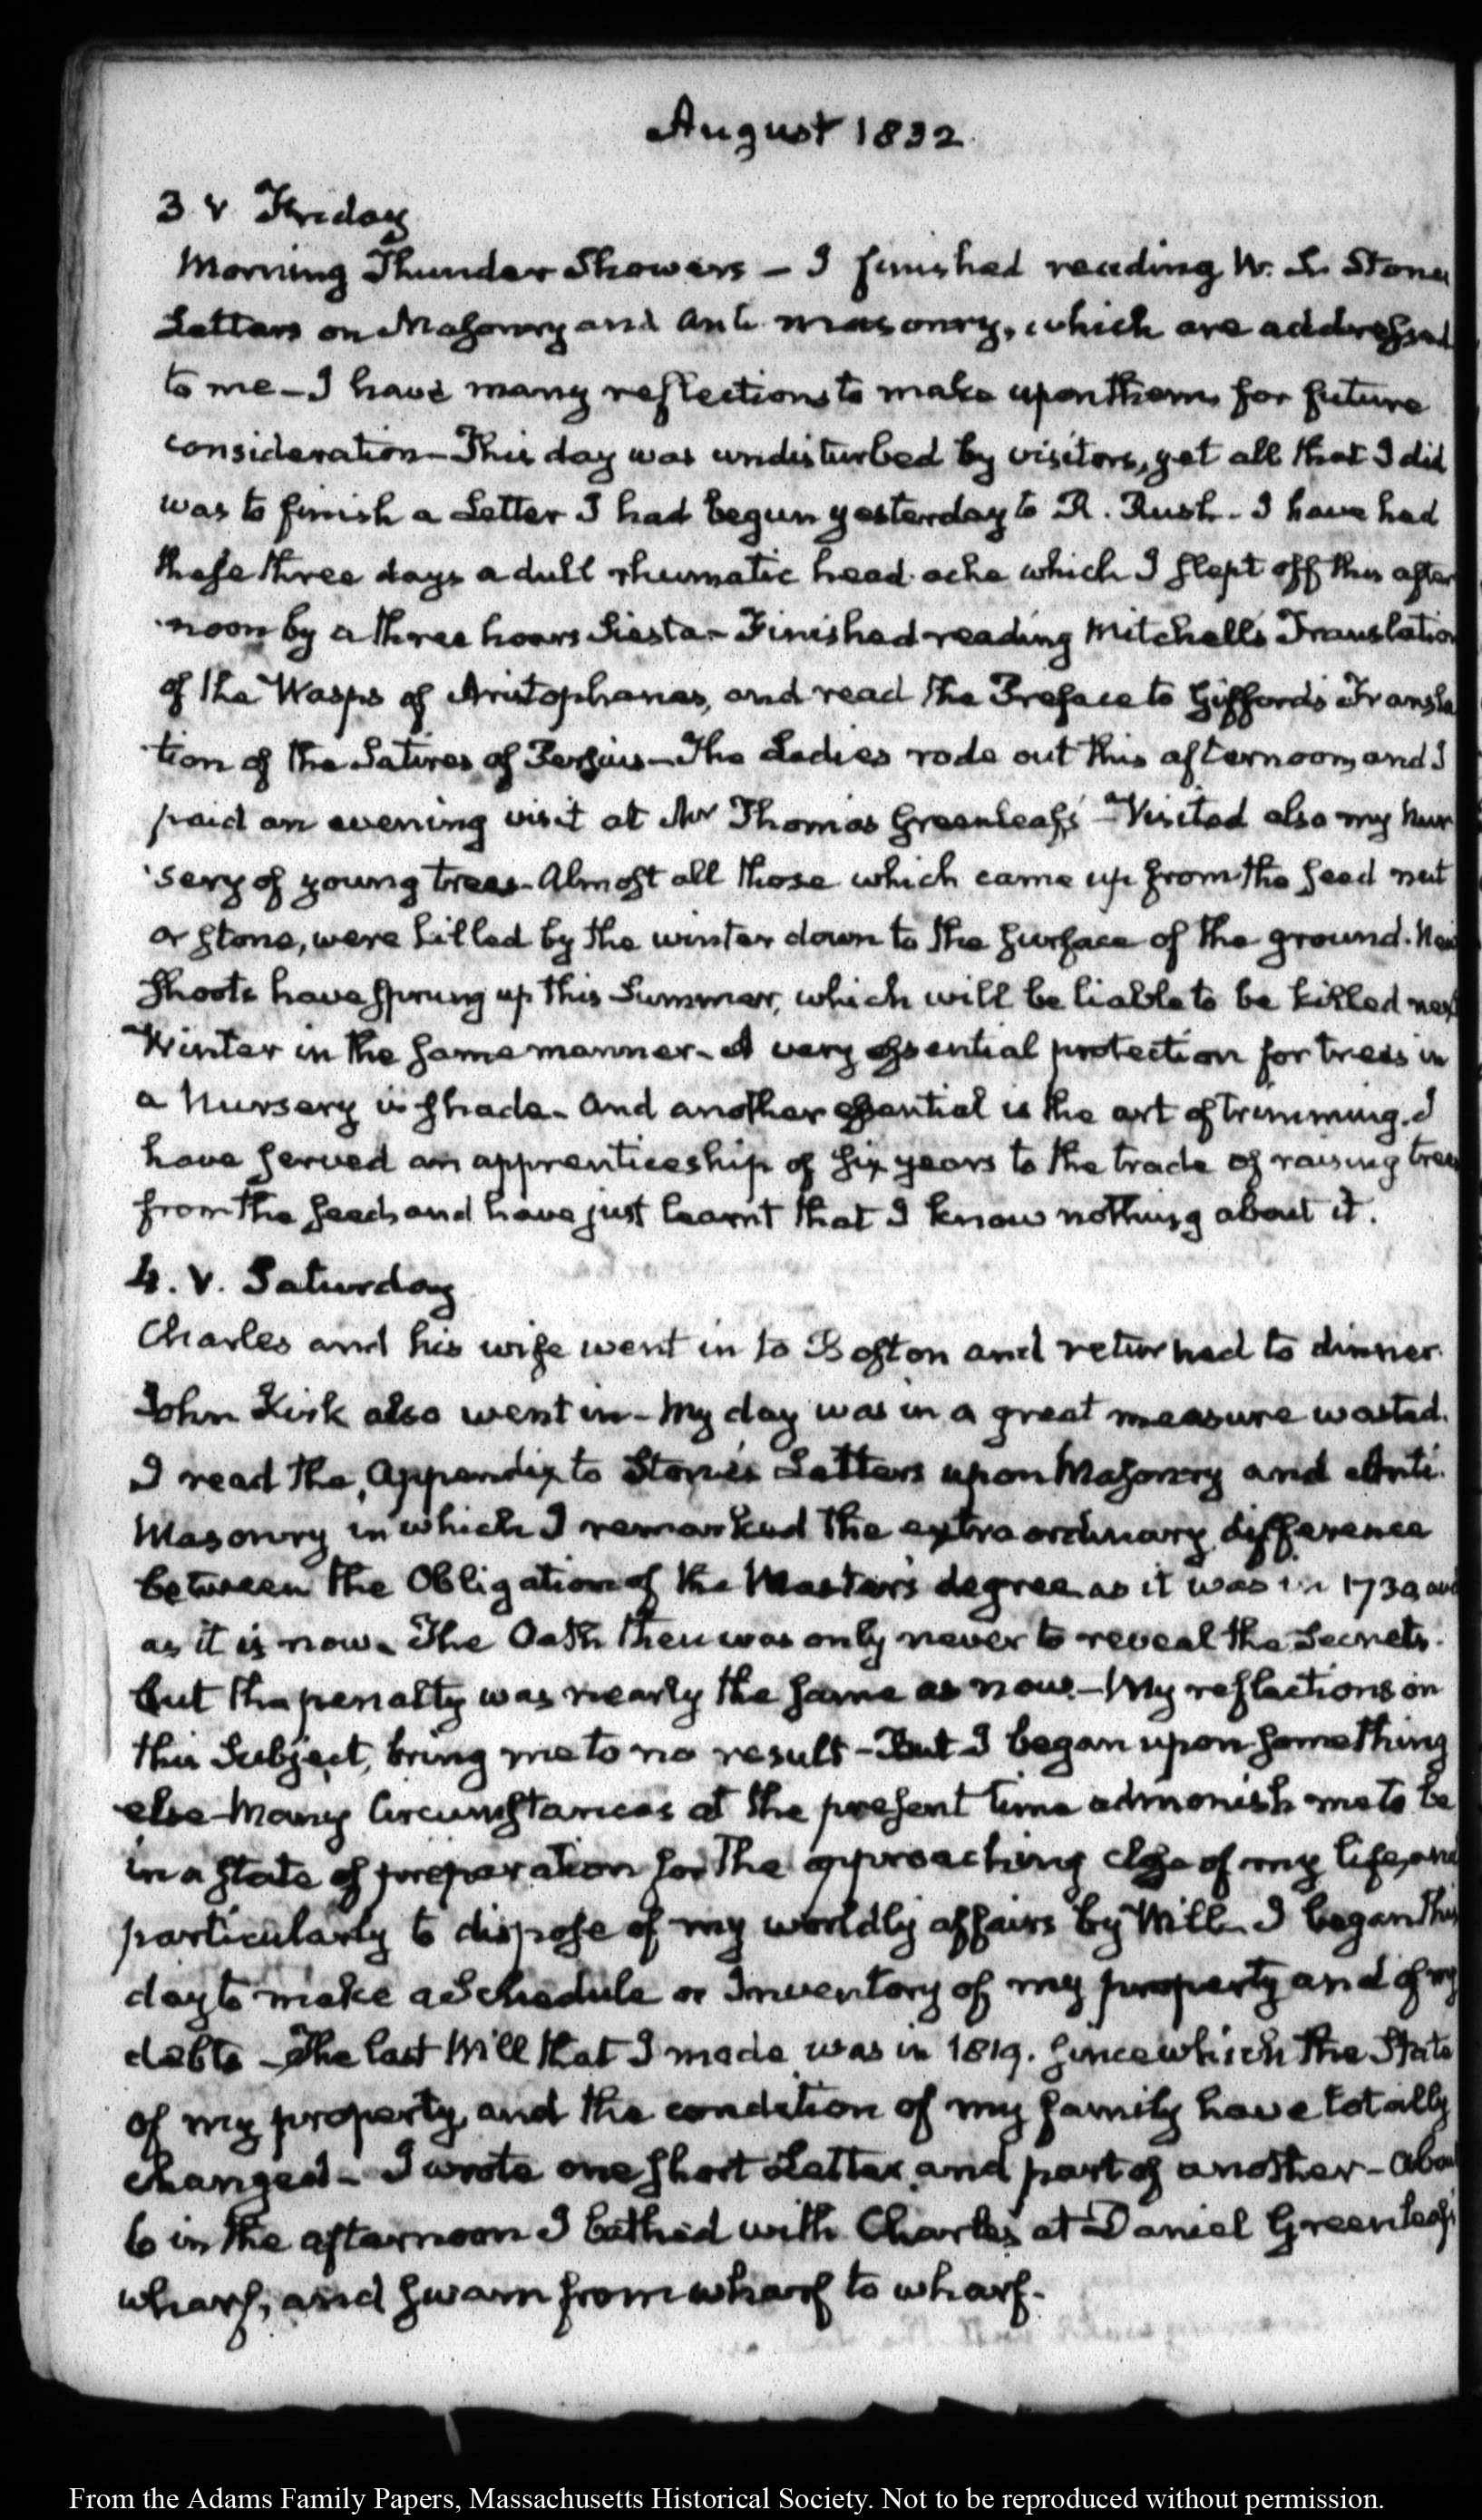 August 1832
3 V Friday
Morning Thunder Showers – I finished reading W. L. Stone
Letters on Masonry and Anti masonry, which are addressed
to me – I have many reflections to make upon them, for future
consideration – This day was undisturbed by visitors, yet all that I did
was to finish a Letter I had begun yesterday to R. Rush – I have had
these three days a dull rhumatic head-ache which I slept off this after
noon by a three hours Siesta – Finished reading Mitchell's Translation
of the Wasps of Aristophanes, and read the Preface to Gifford's Transla
tion of the Satires of Persius – The Ladies rode out this afternoon, and I
paid an evening visit at Mr Thomas Greenleaf's – Visited also my Nur
sery of young trees – Almost all those which came up from the seed nut
or stone, were killed by the winter down to the surface of the ground. New
shoots have sprung up this Summer, which will be liable to be killed next
Winter in the same manner – A very essential protection for trees in
a Nursery is shade – And another essential is the art of trimming. I
have served an apprenticeship of six years to the trade of raising trees
from the seed, and have just learnt that I know nothing about it.
4. V. Saturday
Charles and his wife went in to Boston and returned to dinner
John Kirk also went in – My day was in a great measure wasted.
I read the Appendix to Stone's Letters upon Masonry and Anti-
Masonry in which I remarked the extraordinary difference
between the Obligation of the Master's degree as it was in 1730, and
as it is now. The Oath then was only never to reveal the Secrets.
but the penalty was nearly the same as now. – My reflections on
this Subject, bring me to no result – But I began upon something
else – Many Circumstances at the present time admonish me to be
in a state of preparation for the approaching close of my life, and
particularly to dispose of my worldly affairs by Will – I began this
day to make a Schedule or Inventory of my property and of my
debts – The last Will that I made was in 1819. since which the State
of my property, and the condition of my family have totally
changed – I wrote one short Letter, and part of another – About
6 in the afternoon I bathed with Charles at Daniel Greenleaf's
wharf, and swam from wharf to wharf.
From the Adams Family Papers, Massachusetts Historical Society. Not to be reproduced without permission.